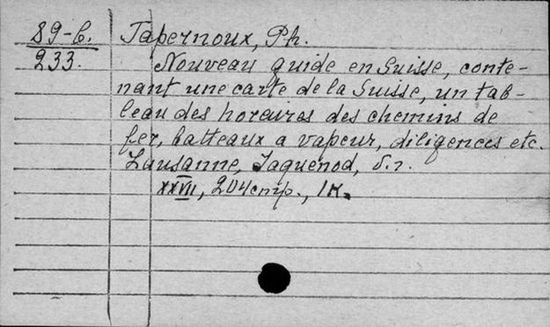 89-6.
233.
Tapernoux, Ph.
Nouveau guide en Suisse, conte-
nant une carte de la Suisse, un tab-
leau des horaires des chemins de
fer, batteaux a vapeur, diligences etc.
Lausanne, Jaquenod, s.a.
XXVIII, 204 стр., 1к.